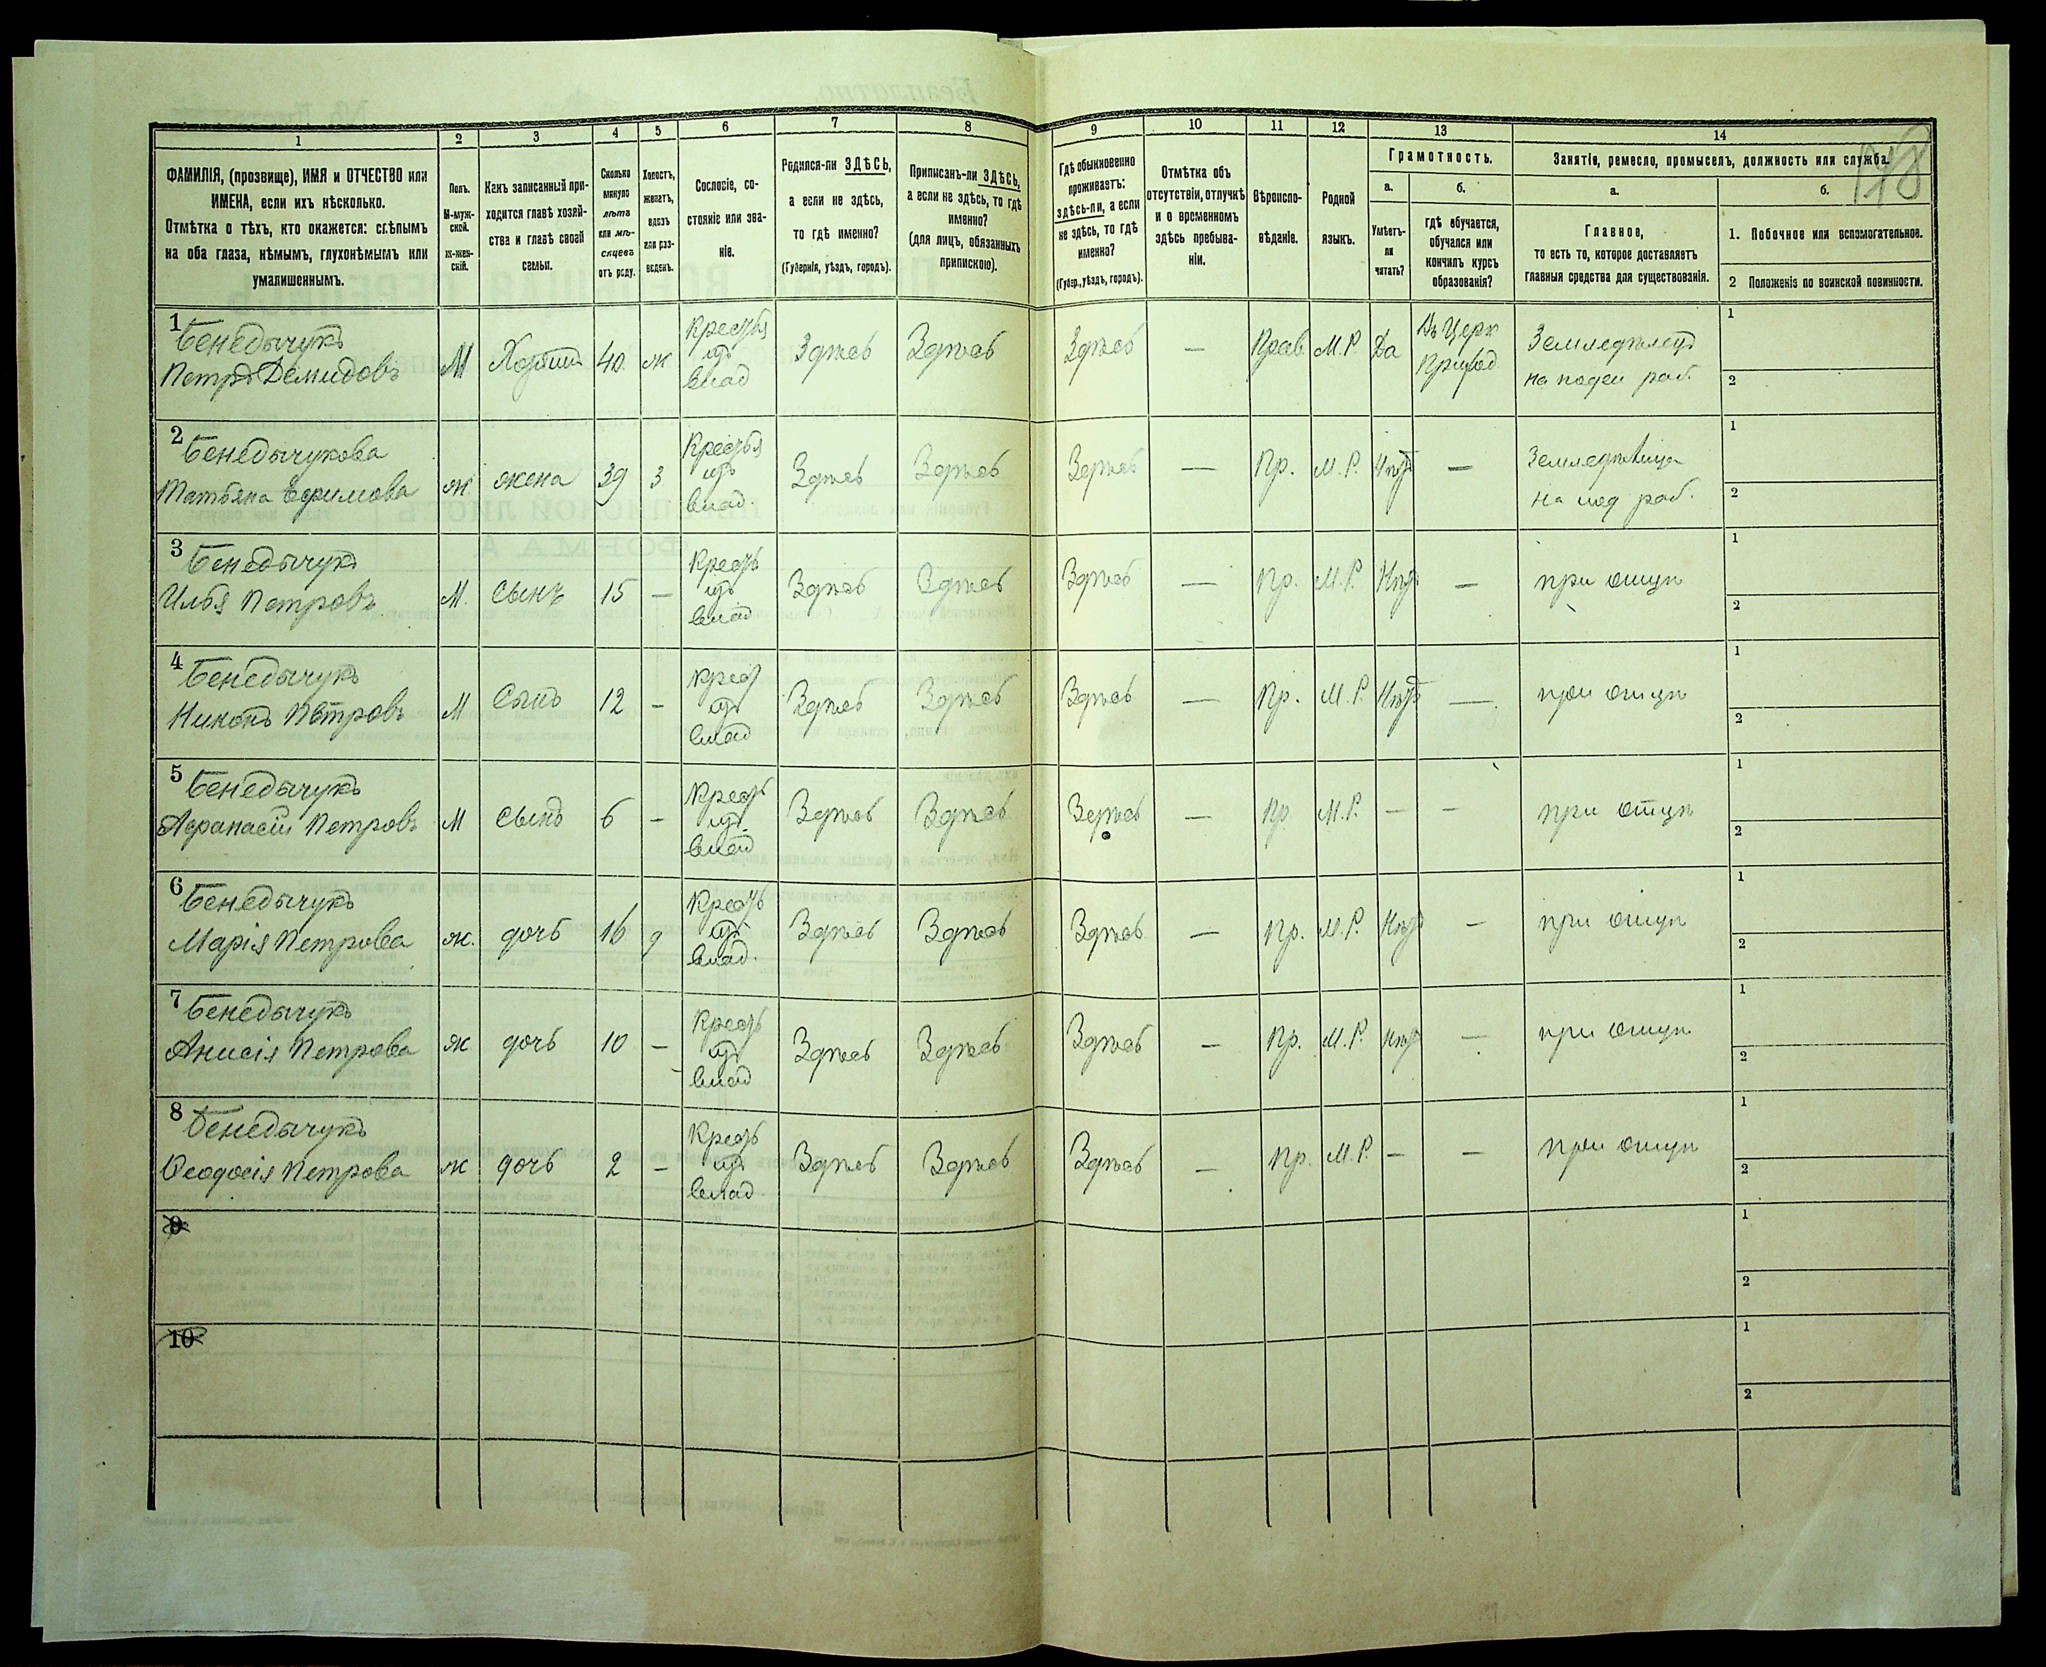 178
1 2 3 4 5 6 7 8 9 10 11 12 13 14
ФАМИЛІЯ, (прозвище), ИМЯ и ОТЧЕСТВО или
ИМЕНА, если ихъ нѣсколько.
Отмѣтка о тѣхъ, кто окажется: слѣпымъ
на оба глаза, нѣмымъ, глухонѣмымъ или
умалишеннымъ.
Полъ.
М-муж-
ской.
Ж-жен-
скій.
Какъ записанный при-
ходится главѣ хозяй-
ства и главѣ своей
семьи.
Сколько
минуло
лѣтъ
или мѣ-
сяцевъ
отъ роду.
Холостъ,
женатъ,
вдовъ
или раз-
веденъ.
Сословіе, со-
стояніе или зва-
ніе.
Родился-ли ЗДѢСЬ,
а если не здѣсь,
то гдѣ именно?
(Губернія, уѣздъ, городъ).
Приписанъ-ли ЗДѢСЬ,
а если не здѣсь, то гдѣ
именно?
(для лицъ, обязанныхъ
припискою).
Гдѣ обыкновенно
проживаетъ:
здѣсь-ли, а если
не здѣсь, то гдѣ
именно?
(Губер., уѣздъ, городъ).
Отмѣтка объ
отсутствіи, отлучкѣ
и о временномъ
здѣсь пребыва-
ніи.
Вѣроиспо-
вѣданіе.
Родной
языкъ.
Грамотность.
а.
Умѣетъ-
ли
читать?
б.
гдѣ обучается,
обучался или
кончилъ курсъ
образованія?
Занятія, ремесло, промыселъ, должность или служба.
а.
Главное,
то есть то, которое доставляетъ
главныя средства для существованія.
б.
1. Побочное или вспомогательное.
2 Положеніе по воинской повинности.
1 Бенедычукъ
Петръ Демидовъ М 40 ж
Крестья
изъ
влад
Здѣсь Здѣсь Здѣсь — Прав. М.Р Да
Въ Церк
Приход
Земледѣлецъ
1
2
2 Бенедычукова
Татьяна Ефимова ж жена 39 з
Крестья
изъ
влад.
Здѣсь Здѣсь Здѣсь — Пр. М.Р. Нѣтъ —
1
2
3 Бенедычукъ
Илья Петровъ М. сынъ 15 —
Кресть
изъ
влад
Здѣсь Здѣсь Здѣсь — Пр. М.Р. Нѣтъ — при отцѣ
1
2
4 Бенедычукъ
Никонъ Петровъ М Сынъ 12 —
Крест
изъ
влад
Здѣсь Здѣсь Здѣсь — Пр. М.Р. Нѣтъ — при отцѣ
1
2
5 Бенедычукъ
Афанасій Петровъ М сынъ 6 —
Кресть
изъ
влад
Здѣсь Здѣсь Здѣсь — Пр. М.Р. — — при отцѣ
1
2
6 Бенедычукъ
Марія Петрова ж. дочь 16 д
Кресть
изъ
влад.
Здѣсь Здѣсь Здѣсь — Пр. М.Р. Нѣтъ — при отцѣ
1
2
7 Бенедычукъ
Анисія Петрова ж дочь 10 —
Кресть
изъ
влад
Здѣсь Здѣсь Здѣсь — Пр. М.Р. Нѣтъ — при отцѣ
1
2
8 Бенедычукъ
Ѳеодосія Петрова ж дочь 2 —
Кресть
изъ
влад.
Здѣсь Здѣсь Здѣсь — Пр. М.Р. — — при отцѣ
1
2
9
1
2
10
1
2